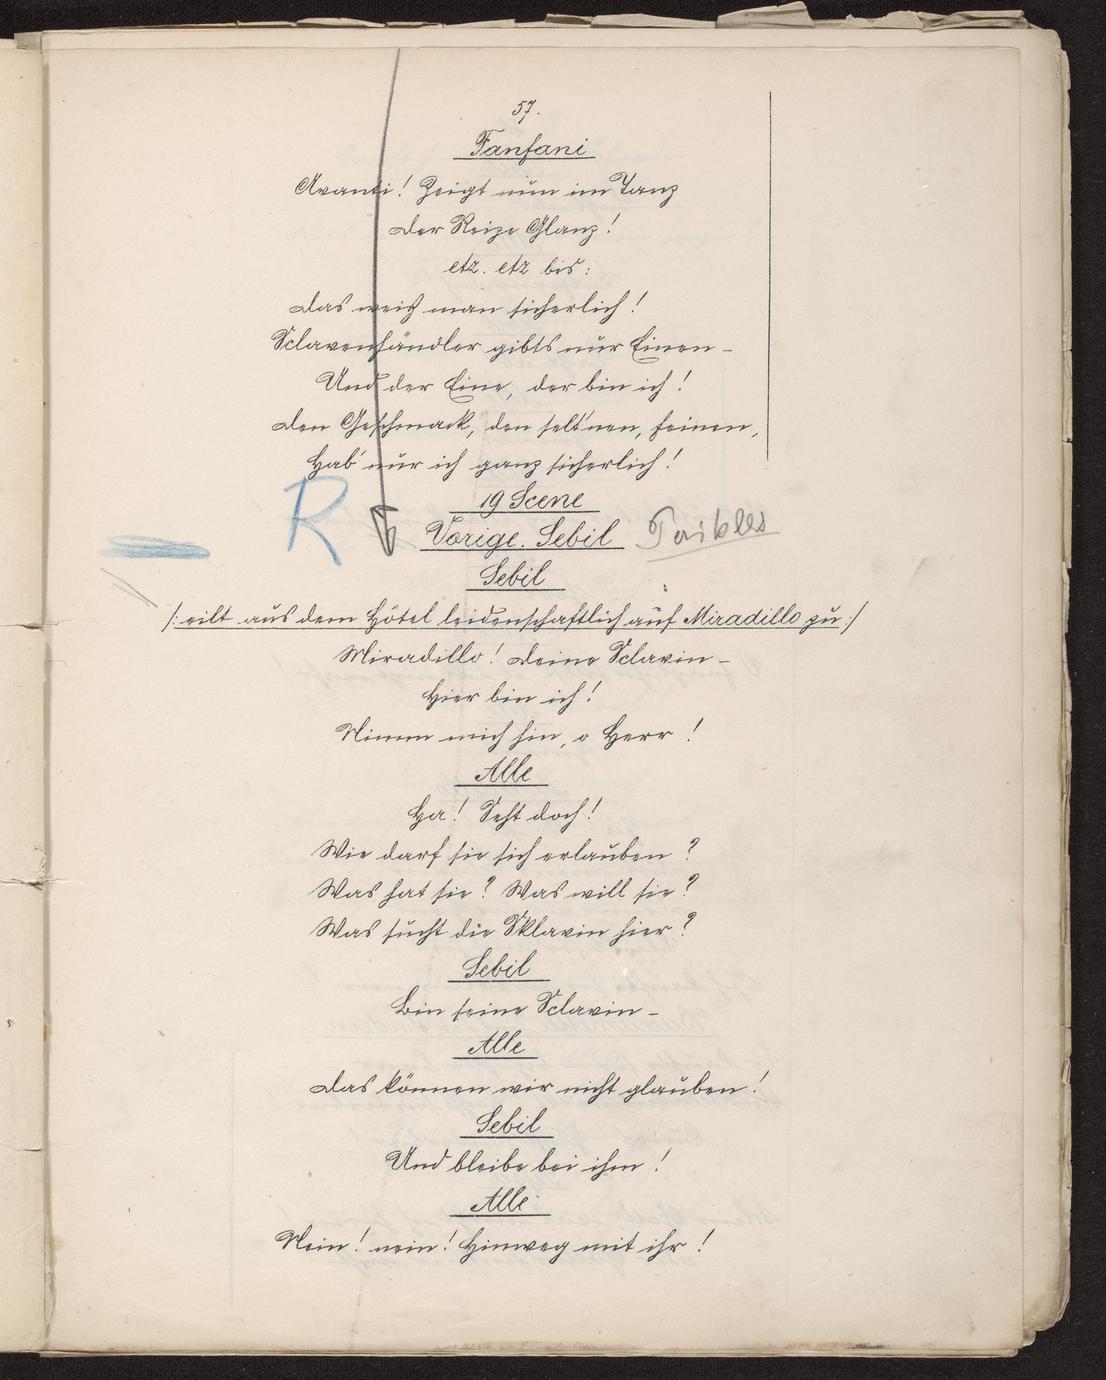 57.
Fanfani
Avanti! Zeigt nun im Tanz
Der Reize Glanz!
etz. etz bis:
Das weiß man sicherlich!
Sclavenhändler gibts nur Einen –
Und der Eine, der bin ich!
Den Geschmack, den selt'nen, feinen,
Hab' nur ich ganz sicherlich!
19 Scene
R
Vorige. Sebil
Sebil
/: eilt aus dem Hôtel leidenschaftlich auf Miradillo zu :/
Miradillo! Deine Sclavin –
Hier bin ich!
Nimm mich hin, o Herr!
Alle
Ha! Seht doch!
Wie darf sie sich erlauben?
Was hat sie? Was will sie?
Was sucht die Sklavin hier?
Sebil
Bin seine Sclavin –
Alle
Das können wir nicht glauben!
Sebil
Und bleibe bei ihm!
Alle
Nein! nein! Hinweg mit ihr!